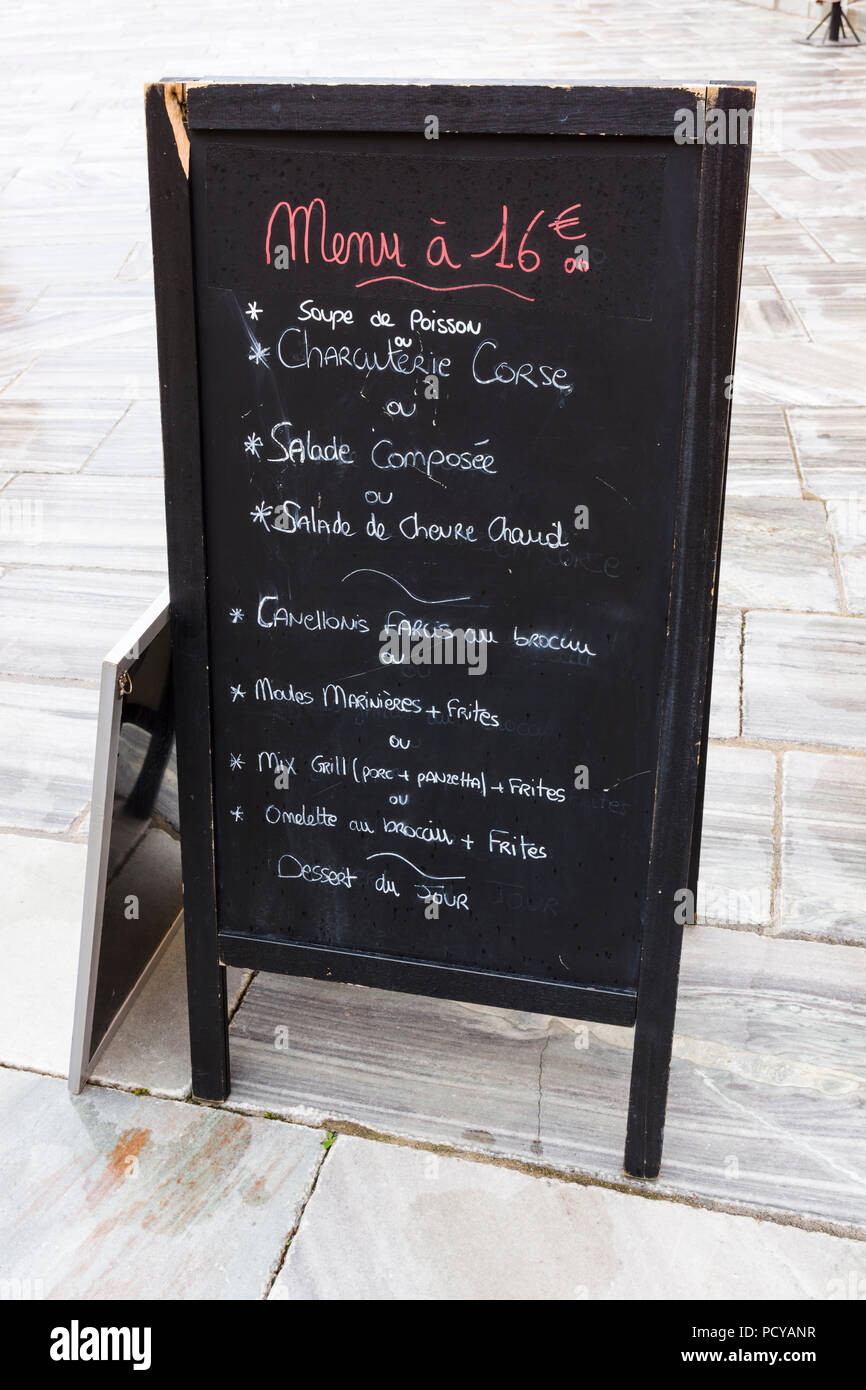 Menu à 16€
* Soupe de Poisson
ou
* Charcuterie Corse
ou
* Salade Composée
ou
* Salade de Chevre Chaud
* Canellonis farcis au brocciu
ou
* Moules Marinières + Frites
ou
* Mix Grill (porc + panzetta) + Frites
ou
* Omelette au brocciu + Frites
Dessert du Jour
a
alamy
Image ID: PCYANR
www.alamy.com